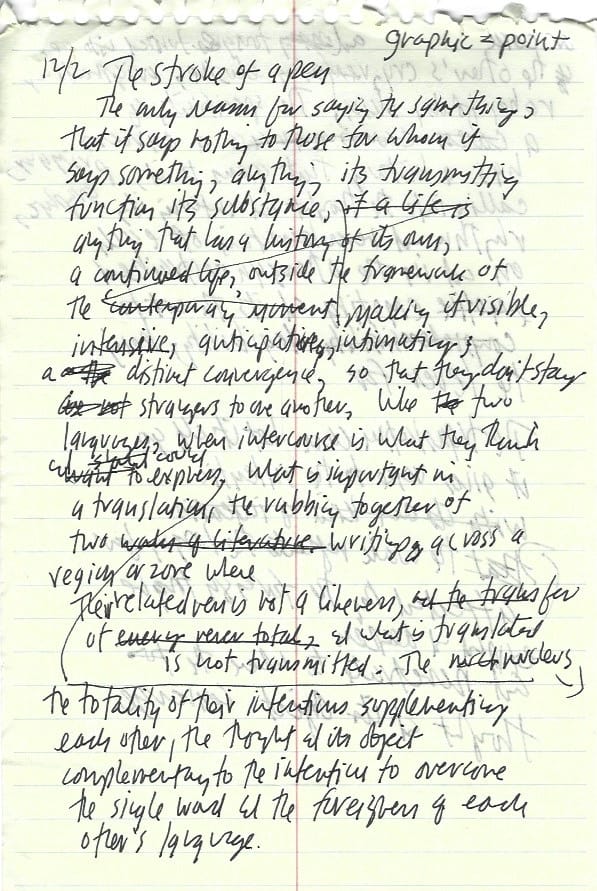 graphic = point
12/2 The stroke of a pen
The only reason for saying the same thing,
that it says nothing to those for whom it
says something, anything, its transmitting
function its substance, if a life is
anything that has a history of its own,
a continued life, outside the framework of
the contemporary moment, making it visible,
intensive, anticipatory, intimating,
a distinct convergence, so that they don't stay
are not strangers to one another, like the two
languages, when intercourse is what they think
want to express, What is important in
could
a translation, the rubbing together of
two works of literature. writings across a
region or zone where
Their relatedness is not a likeness, not the transfer
of every never total, and what is translated
is not transmitted. The nucleus,
the totality of their intentions supplementing
each other, the thought and its object
complementary to the intention to overcome
the single word and the foreignness of each
other's language.